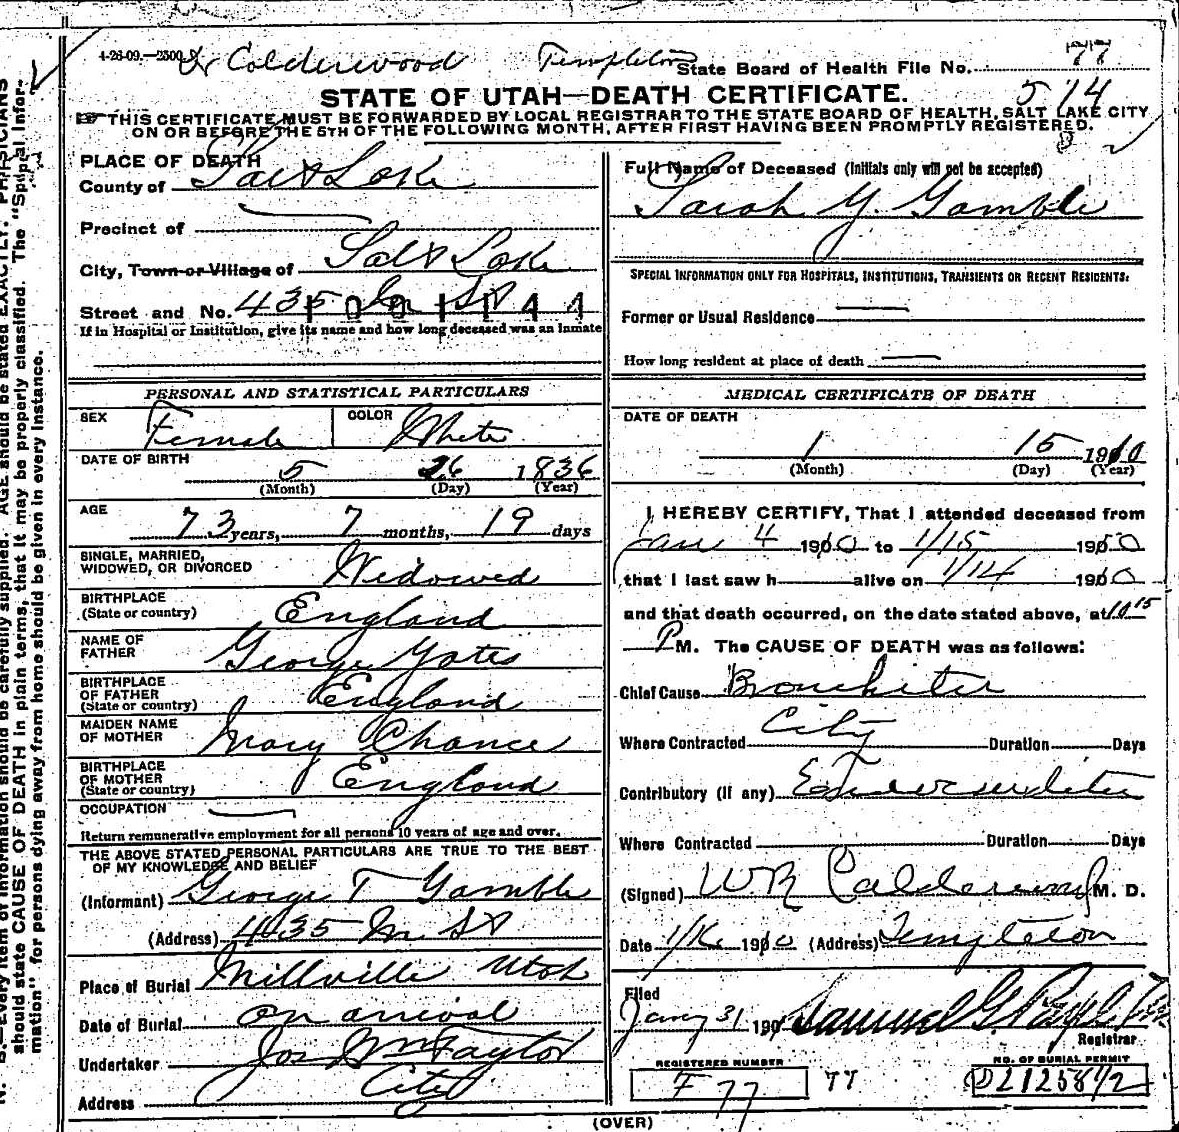 4-26-09.—2500 Dr Calderwood Templeton State Board of Health File No. 77
STATE OF UTAH—DEATH CERTIFICATE. 514
THIS CERTIFICATE MUST BE FORWARDED BY LOCAL REGISTRAR TO THE STATE BOARD OF HEALTH, SALT LAKE CITY
ON OR BEFORE THE 5TH OF THE FOLLOWING MONTH, AFTER FIRST HAVING BEEN PROMPTLY REGISTERED.
PLACE OF DEATH
County of Salt Lake
Precinct of
City, Town or Village of Salt Lake
Street and No. 435 St
1001144
If in Hospital or Institution, give its name and how long deceased was an Inmate
Full Name of Deceased (Initials only will not be accepted)
Sarah Y. Gamble
SPECIAL INFORMATION ONLY FOR HOSPITALS, INSTITUTIONS, TRANSIENTS OR RECENT RESIDENTS:
Former or Usual Residence —
How long resident at place of death —
PERSONAL AND STATISTICAL PARTICULARS
SEX Female COLOR White
DATE OF BIRTH
5 26 1836
(Month) (Day) (Year)
AGE
73 years, 7 months, 19 days
SINGLE, MARRIED,
WIDOWED, OR DIVORCED Widowed
BIRTHPLACE
(State or country) England
NAME OF
FATHER George Yates
BIRTHPLACE
OF FATHER
(State or country) England
MAIDEN NAME
OF MOTHER Mary Chance
BIRTHPLACE
OF MOTHER
(State or country) England
OCCUPATION —
Return remunerative employment for all persons 10 years of age and over.
THE ABOVE STATED PERSONAL PARTICULARS ARE TRUE TO THE BEST
OF MY KNOWLEDGE AND BELIEF
(Informant) George T Gamble
(Address) 435 St
Place of Burial Millville Utah
Date of Burial On arrival
Undertaker Jos Wm Taylor
Address City
MEDICAL CERTIFICATE OF DEATH
DATE OF DEATH
1 15 1910
(Month) (Day) (Year)
I HEREBY CERTIFY, That I attended deceased from
Jan 4 1910 to 1/15 1910
that I last saw h alive on 1/14 1910
and that death occurred, on the date stated above, at 10 15
P M. The CAUSE OF DEATH was as follows:
Chief Cause Bronchitis
Where Contracted City Duration Days
Contributory (if any)
Where Contracted Duration Days
(Signed) W R Calderwood M. D.
Date 1/16 1910 (Address) Templeton
Filed
Jany 31 190 Samuel G. Paul
Registrar
REGISTERED NUMBER
F 77 77
NO. OF BURIAL PERMIT
D21258 1/2
(OVER)
N. B.—Every item of information should be carefully supplied. AGE should be stated EXACTLY. PHYSICIANS
should state CAUSE OF DEATH in plain terms, that it may be properly classified. The "Special Infor-
mation" for persons dying away from home should be given in every instance.